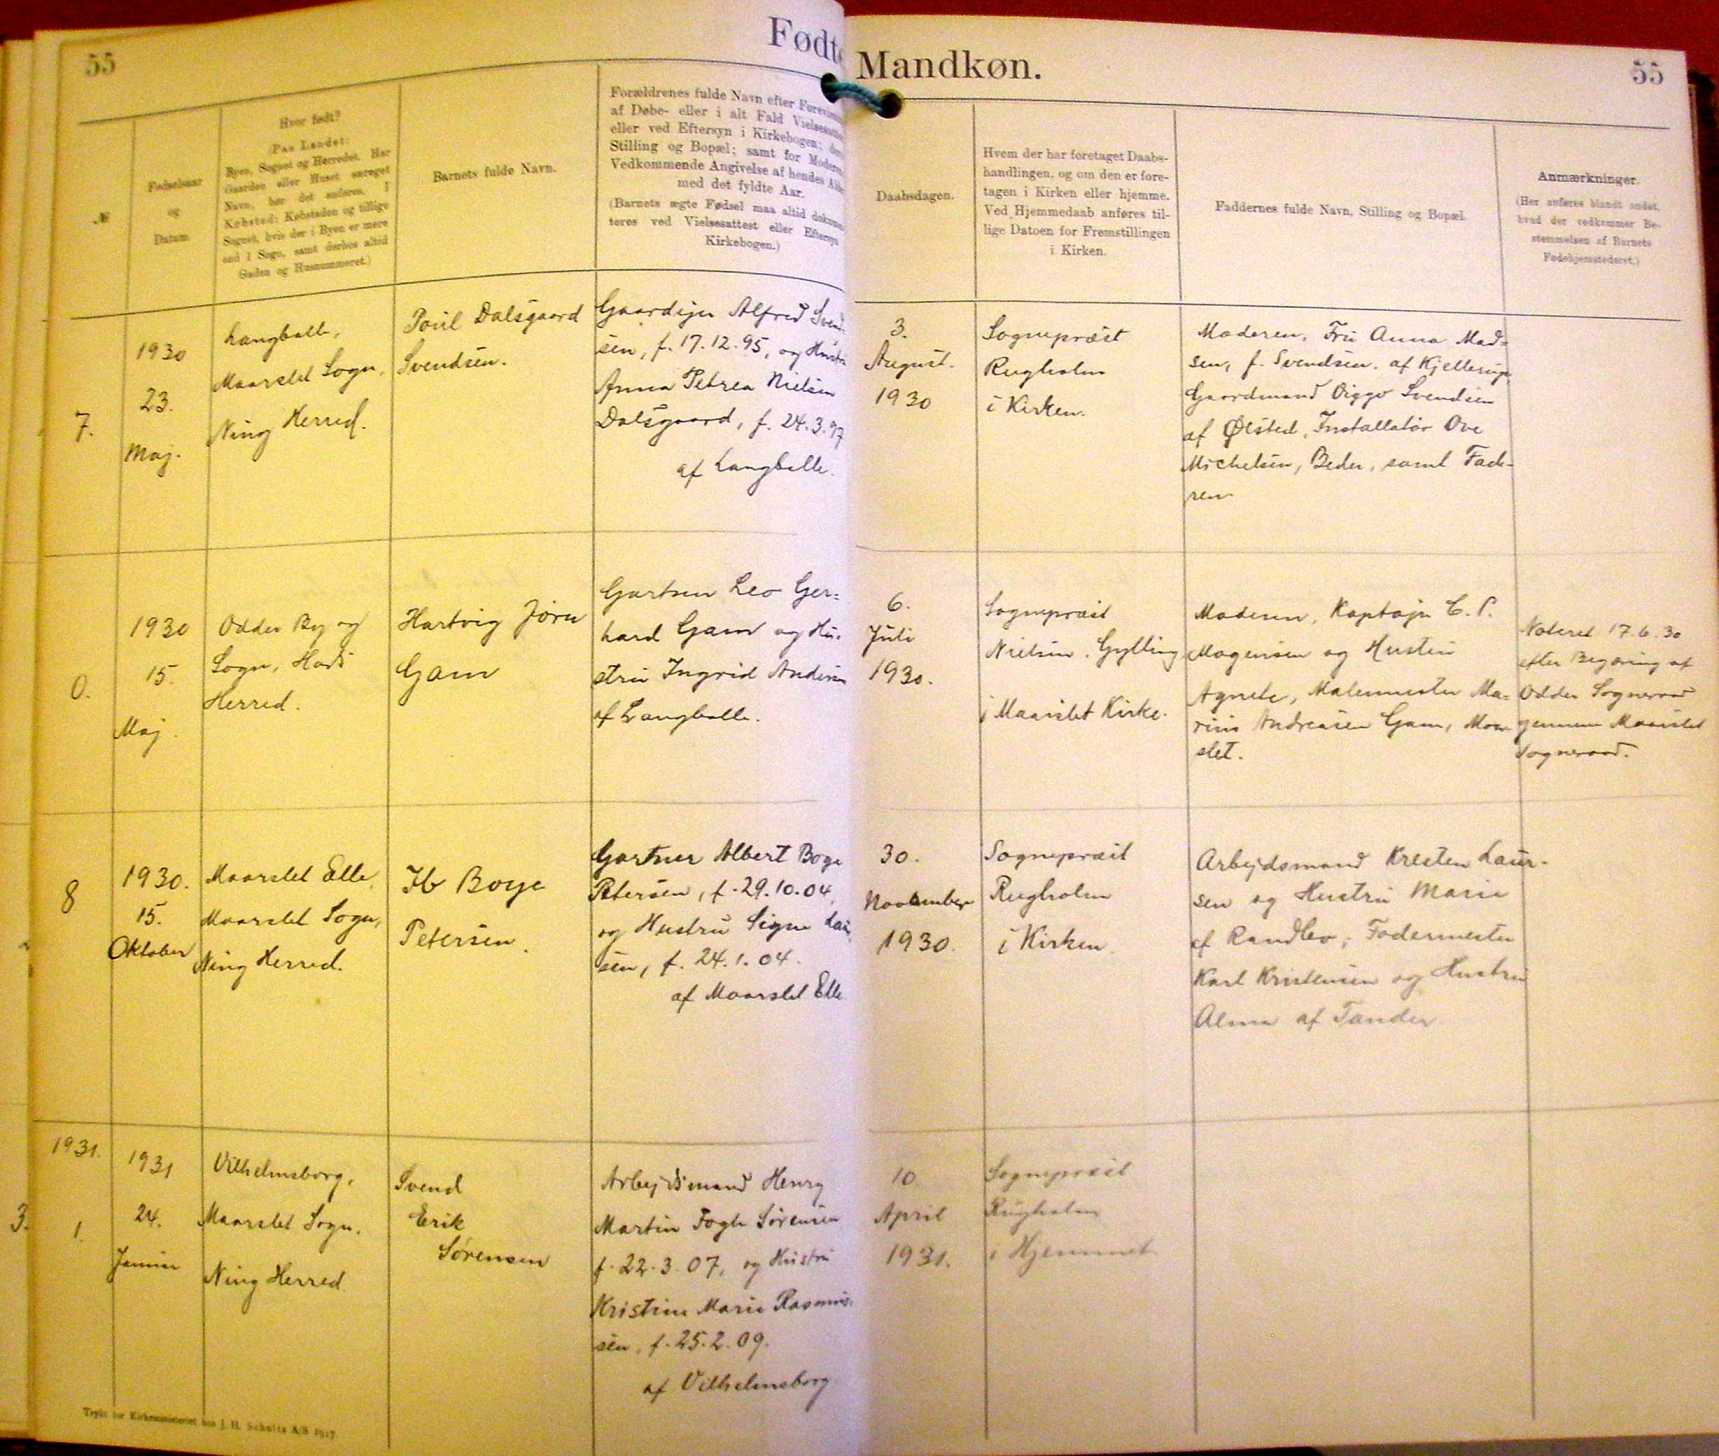 55
Fødte
Mandkøn.
55
№
Fødselsaar
og
Datum
Hvor født?
(Paa Landet:
Byen, Sognet og Herredet. Har
Gaarden eller Huset særeget
Navn, bør det anføres. I
Købsted: Købstaden og tillige
Sognet, hvis der i Byen er mere
end 1 Sogn, samt derhos altid
Gaden og Husnummeret.)
Barnets fulde Navn.
Forældrenes fulde Navn efter
af Døbe- eller i alt Fald
eller ved Eftersyn i Kirkebogen;
Stilling og Bopæl; samt for
Vedkommende Angivelse af hendes
med det fyldte Aar.
(Barnets ægte Fødsel maa altid
teres ved Vielsesattest eller Eftersyn
Kirkebogen.)
Daabsdagen.
Hvem der har foretaget Daabs-
handlingen, og om den er fore-
tagen i Kirken eller hjemme.
Ved Hjemmedaab anføres til-
lige Datoen for Fremstillingen
i Kirken.
Faddernes fulde Navn, Stilling og Bopæl.
Anmærkninger.
(Her anføres blandt andet,
hvad der vedkommer Be-
stemmelsen af Barnets
Fødehjemstedsret.)
7.
1930
23.
Maj.
Langballe,
Maarslet Sogn,
Ning Herred.
Poul Dalsgaard
Svendsen.
Gaardejer Alfred Svend-
sen, f. 17.12.95, og Hustru
Anna Petrea Nielsen
Dalsgaard, f. 24.3.97
af Langballe.
3.
August.
1930
Sognepræst
Rugholm
i Kirken.
Moderen, Fru Anna Mad-
sen, f. Svendsen. af Kjellerup
Gaardmand Viggo Svendsen
af Ølsted, Installatør Ove
Michelsen, Beder, samt Fade-
ren
0.
1930
15.
Maj.
Odder By og
Sogn, Hads
Herred.
Hartvig Jørn
Gam
Gartner Leo Ger-
hard Gam og Hu-
stru Ingrid Andersen
af Langballe.
6.
Juli
1930.
Sognepræst
Nielsen. Gylling
i Maarslet Kirke.
Moderen, Kaptajn C. P.
Mogensen og Hustru
Agnete, Malermester Ma-
rius Andreasen Gam, Maar-
slet.
Noteret 17.6.30
efter Begæring af
Odder Sogneraad
gennem Maarslet
Sogneraad.
8
1930.
15.
Oktober
Maarslet Elle,
Maarslet Sogn,
Ning Herred.
Ib Boye
Petersen.
Gartner Albert Boye
Petersen, f. 29.10.04,
og Hustru Signe
sen, f. 24.1.04.
af Maarslet Elle
30.
November
1930.
Sognepræst
Rugholm
i Kirken.
Arbejdsmand Kresten Laur-
sen og Hustru Marie
af Randlev; Fodermester
Karl Kristensen og Hustru
Alma af Tander.
1931.
3.
1.
1931
24.
Januar
Vilhelmsborg,
Maarslet Sogn.
Ning Herred
Svend
Erik
Sørensen
Arbejdsmand Henry
Martin Fogh Sørensen
f. 22.3.07, og Hustru
Kristine Marie Rasmus-
sen, f. 25.2.09.
af Vilhelmsborg
10.
April
1931.
Sognepræst
Rugholm
i Hjemmet
Trykt for Kirkeministeriet hos J. H. Schultz A/S 1917